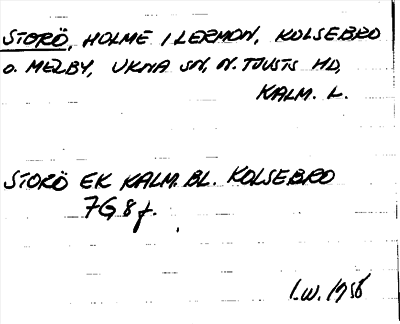 STORÖ, HOLME I LERMON, KOLSEBRO
O. MELBY, UKNA SN, N. TJUSTS HD,
KALM. L.
STORÖ EK KALM. BL. KOLSEBRO
7G 8f.
I.W. 1956